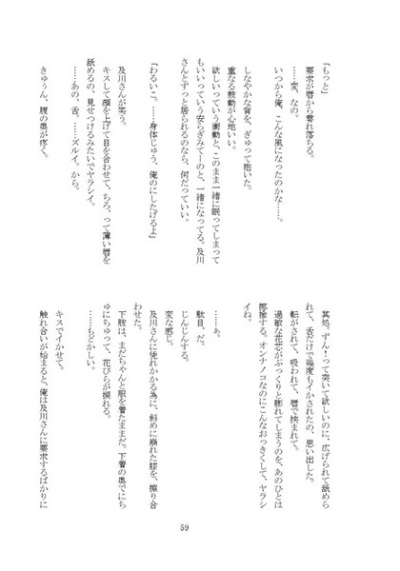 「もっと」
要求が唇から零れ落ちる。
……変、なの。
いつから俺、こんな風になったのかな……。
しなやかな背を、ぎゅって抱いた。
重なる鼓動が心地いい。
欲しいっていう衝動と、このまま一緒に眠ってしまって
もいいっていう安らぎみてーのと、一緒になってる。及川
さんとずっと居られるのなら、何だっていい。
「わるいこ。……身体じゅう、俺のにしたげるよ」
及川さんが笑う。
キスして顔を上げて目を合わせて、ちろ、って薄い唇を
舐めるの、見せつけるみたいでヤラシイ。
……あの、舌。……ズルイ。から。
きゅうん、腹の奥が疼く。
其処。ずん！って突いて欲しいのに、広げられて舐めら
れて、舌だけで幾度もイかされたの、思い出した。
転がされて、吸われて、唇で挟まれて。
過敏な花芯がぷっくりと膨れてしまうのを、あのひとは
揶揄する。オンナノコなのにこんなおっきくして、ヤラシ
イね。
……ぁ。
駄目、だ。
じんじんする。
変な感じ。
及川さんに凭れかかる為に、斜めに崩れた膝を、擦り合
わせた。
下肢は、まだちゃんと服を着たままだ。下着の奥でにち
ゅにちゅって、花びらが捩れる。
……もどかしい。
キスでイかせて。
触れ合いが始まると、俺は及川さんに要求するばかりに
59